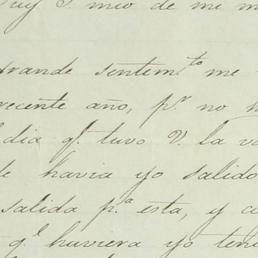 Muy S. mio de mi m
grande sentem.to me
recente año, p.r no
dia q.e tuvo V. la
havia yo salido
salida p.a esta, y
q.e huviera yo ten